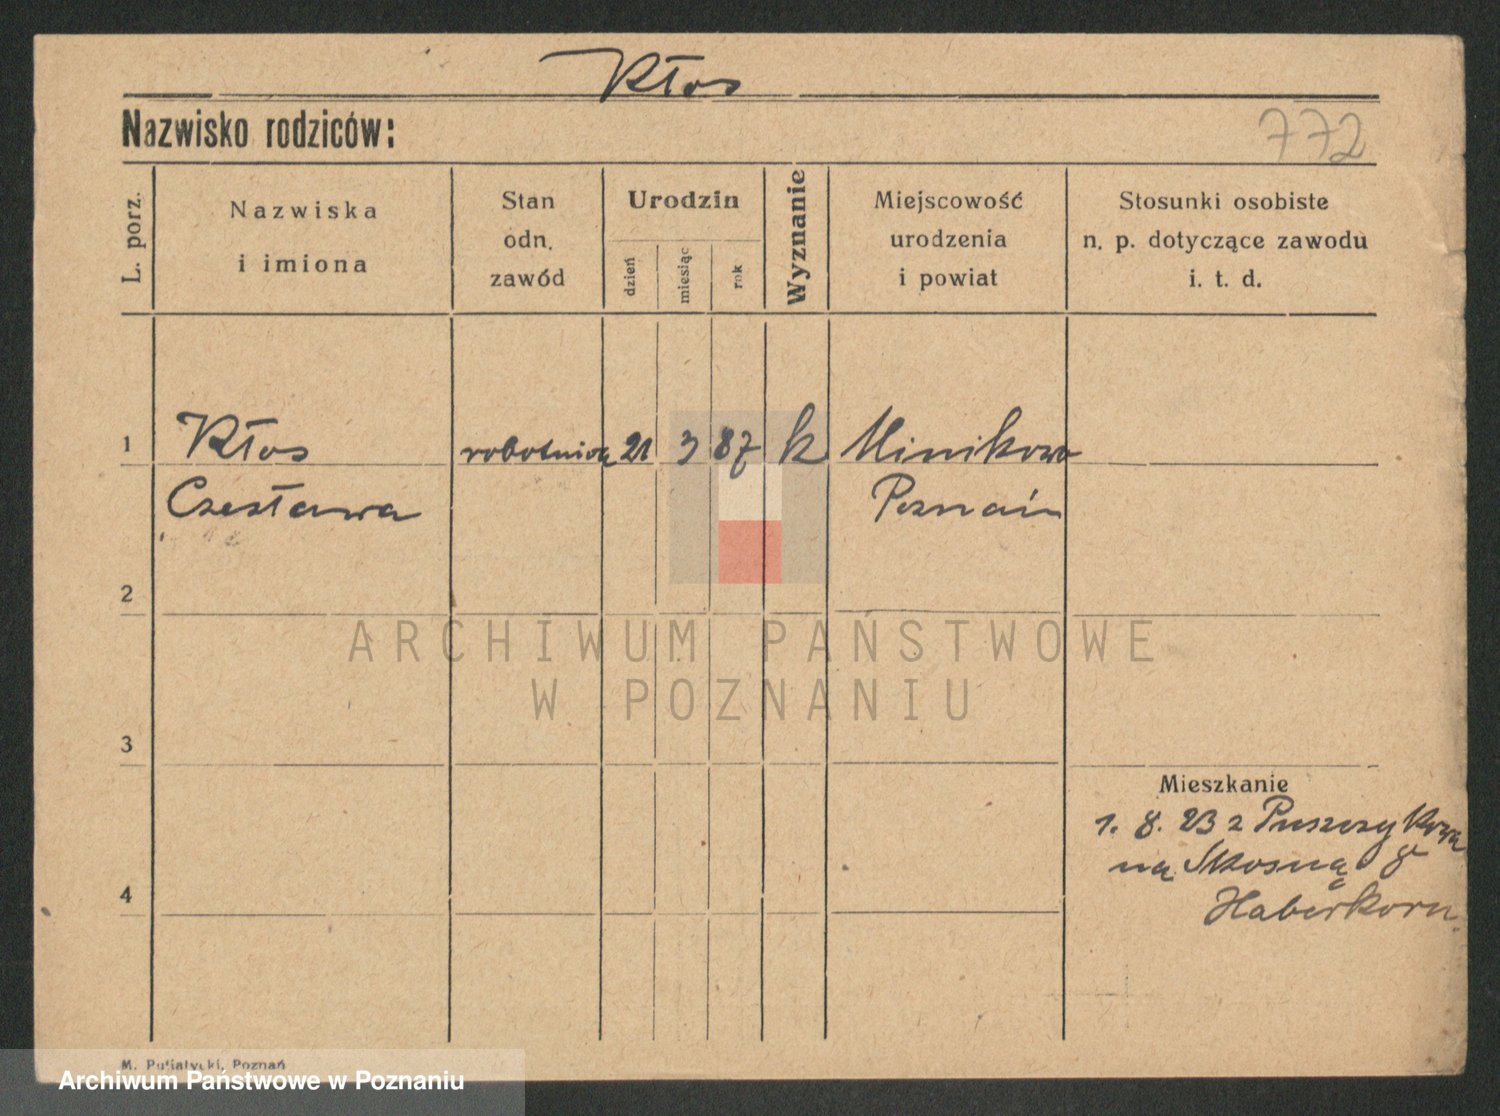 Kłos
Nazwisko rodziców:
772
L. porz.
Nazwiska
i imiona
Stan
odn.
zawód
Urodzin
dzień
miesiąc
rok
Wyznanie
Miejscowość
urodzenia
i powiat
Stosunki osobiste
n. p. dotyczące zawodu
i. t. d.
1
Kłos
robotnica
21
3
87
k
Minikowo
Czesława
Poznań
2
ARCHIWUM PAŃSTWOWE
W POZNANIU
3
Mieszkanie
1. 8. 23 z Puszczykowa
na Skośną 8
Haberkorn
4
M. Putiatycki, Poznań
Archiwum Państwowe w Poznaniu